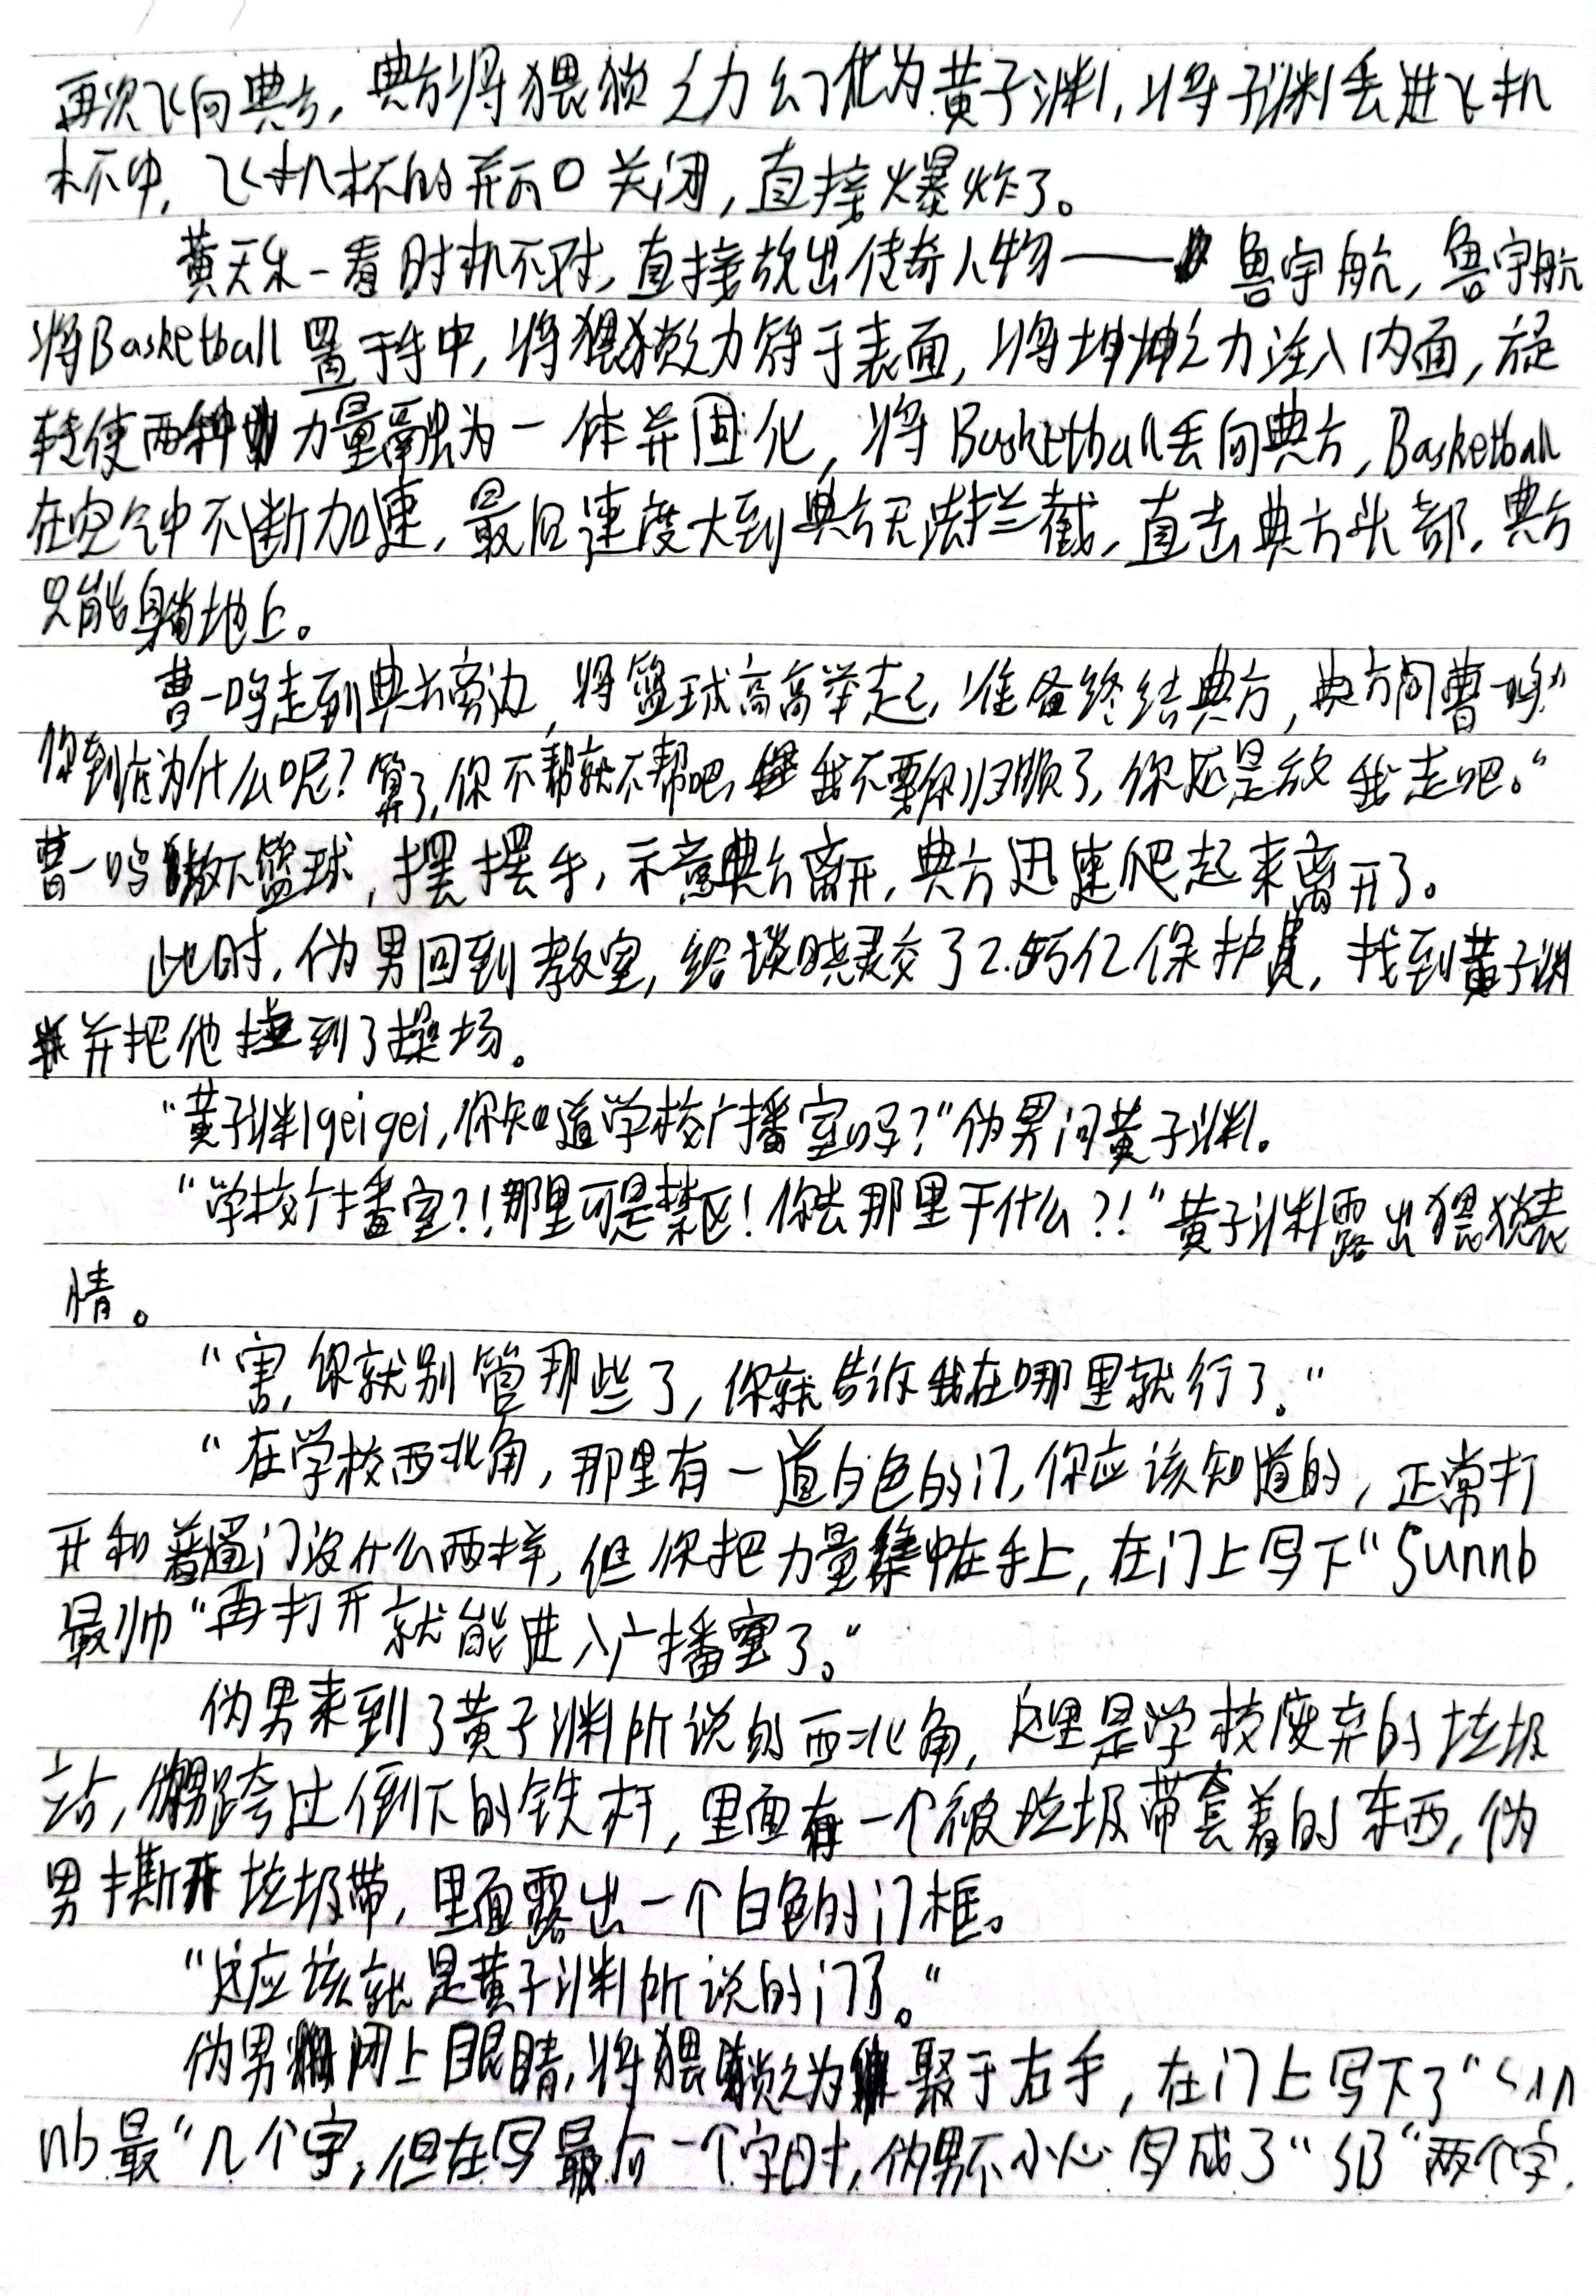 再次飞向典方，典方将猥琐之力幻化为黄子渊，将子渊丢进飞机
杯中，飞机杯的开口关闭，直接爆炸了。
黄天乐一看时机不对，直接放出传奇人物——鲁宇航，鲁宇航
将Basketball置于手中，将猥琐之力符于表面，将坤坤之力注入内面，旋
转使两种力量融为一体并固化，将Basketball丢向典方，Basketball
在空气中不断加速，最后速度大到典方无法拦截，直击典方头部，典方
只能躺地上。
曹一鸣走到典方旁边，将篮球高高举起，准备终结典方，典方问曹一鸣“
你到底为什么呢？算了，你不帮就不帮吧，我不要你归顺了，你还是放我走吧。“
曹一鸣放下篮球，摆摆手，示意典方离开，典方迅速爬起来离开了。
此时，伪男回到教室，给谈晓灵交了2.5亿保护费，找到黄子渊
并把他拉到了操场。
“黄子渊geigei，你知道学校广播室吗？“伪男问黄子渊。
“学校广播室？！那里可是禁区！你去那里干什么？！“黄子渊露出猥琐表
情。
“害，你就别管那些了，你就告诉我在哪里就行了。“
“在学校西北角，那里有一道白色的门，你应该知道的，正常打
开和普通门没什么两样，但你把力量集中在手上，在门上写下“Sunnb
最帅“再打开就能进入广播室了。“
伪男来到了黄子渊所说的西北角，这里是学校废弃的垃圾
站，伪男跨过倒下的铁杆，里面有一个被垃圾带套着的东西，伪
男撕开垃圾带，里面露出一个白色的门框。
“这应该就是黄子渊所说的门了。“
伪男闭上眼睛，将猥琐之力聚于右手，在门上写下了“Sun
nb最“几个字，但在写最后一个字时，伪男不小心写成了“SB“两个字，